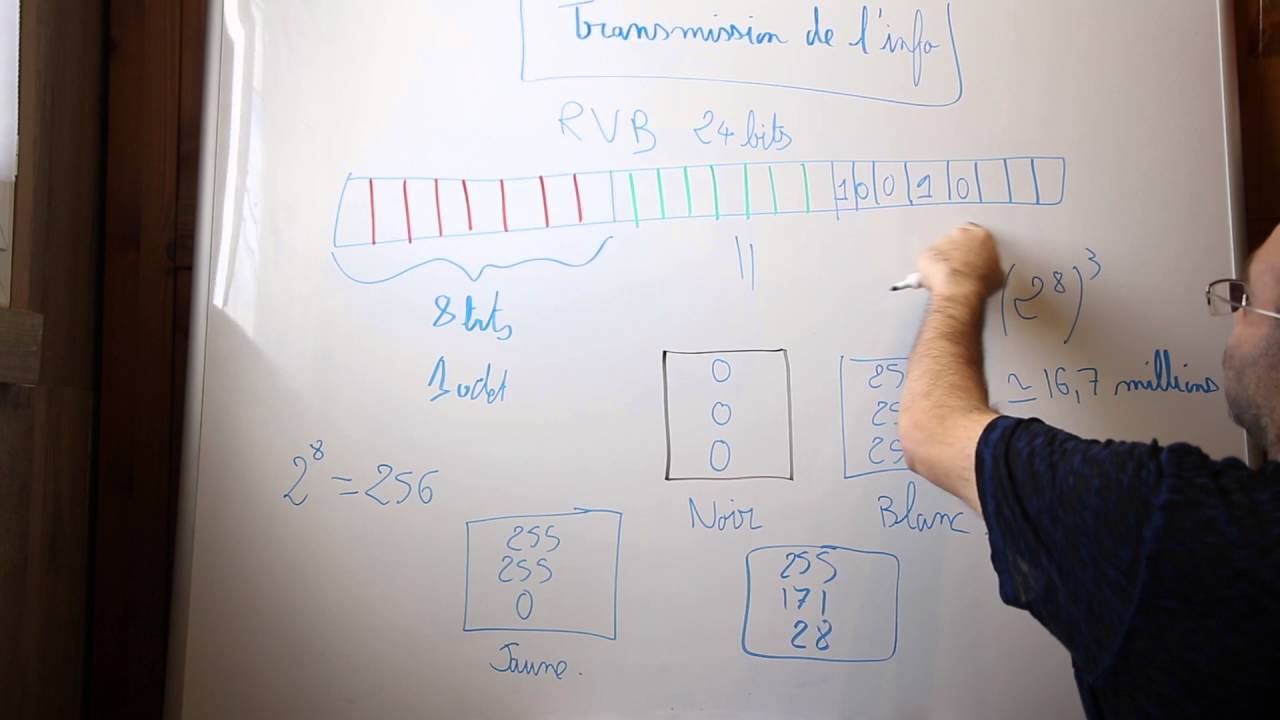 Transmission de l'info
RVB 24 bits
1 0 0 1 0
8 bits
1 octet
(2⁸)³
≃ 16,7 millions
2⁸ = 256
0
0
0
Noir
25
25
25
Blanc
255
255
0
Jaune.
255
171
28